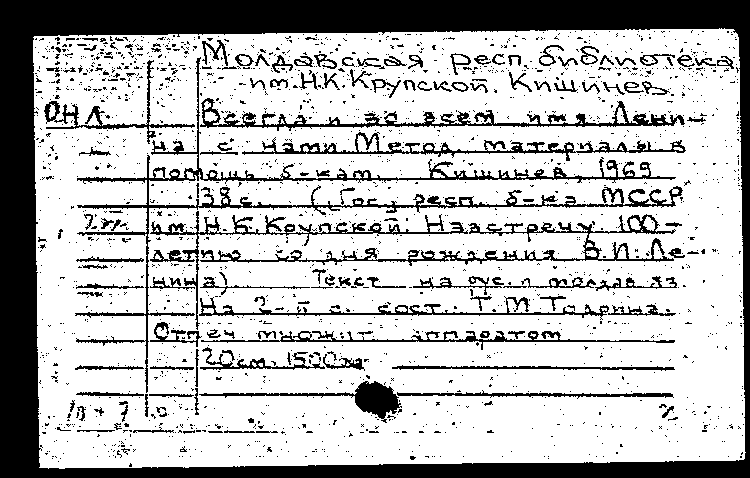 Молдавская респ. библиотека
им. Н.К. Крупской. Кишинев.
ОНЛ. Всегда и во всем имя Лени-
на с нами. Метод. материалы в
помощь б-кам. Кишинев, 1969
38 с. (Гос. респ. б-ка МССР
им. Н.К. Крупской. Наастречу 100-
летию со дня рождения В.И. Ле-
нина). Текст на рус. и молдав яз
На 2-й с. сост.: Т.М. Тодрина.
Отпеч множит аппаратом
20 см. 1500